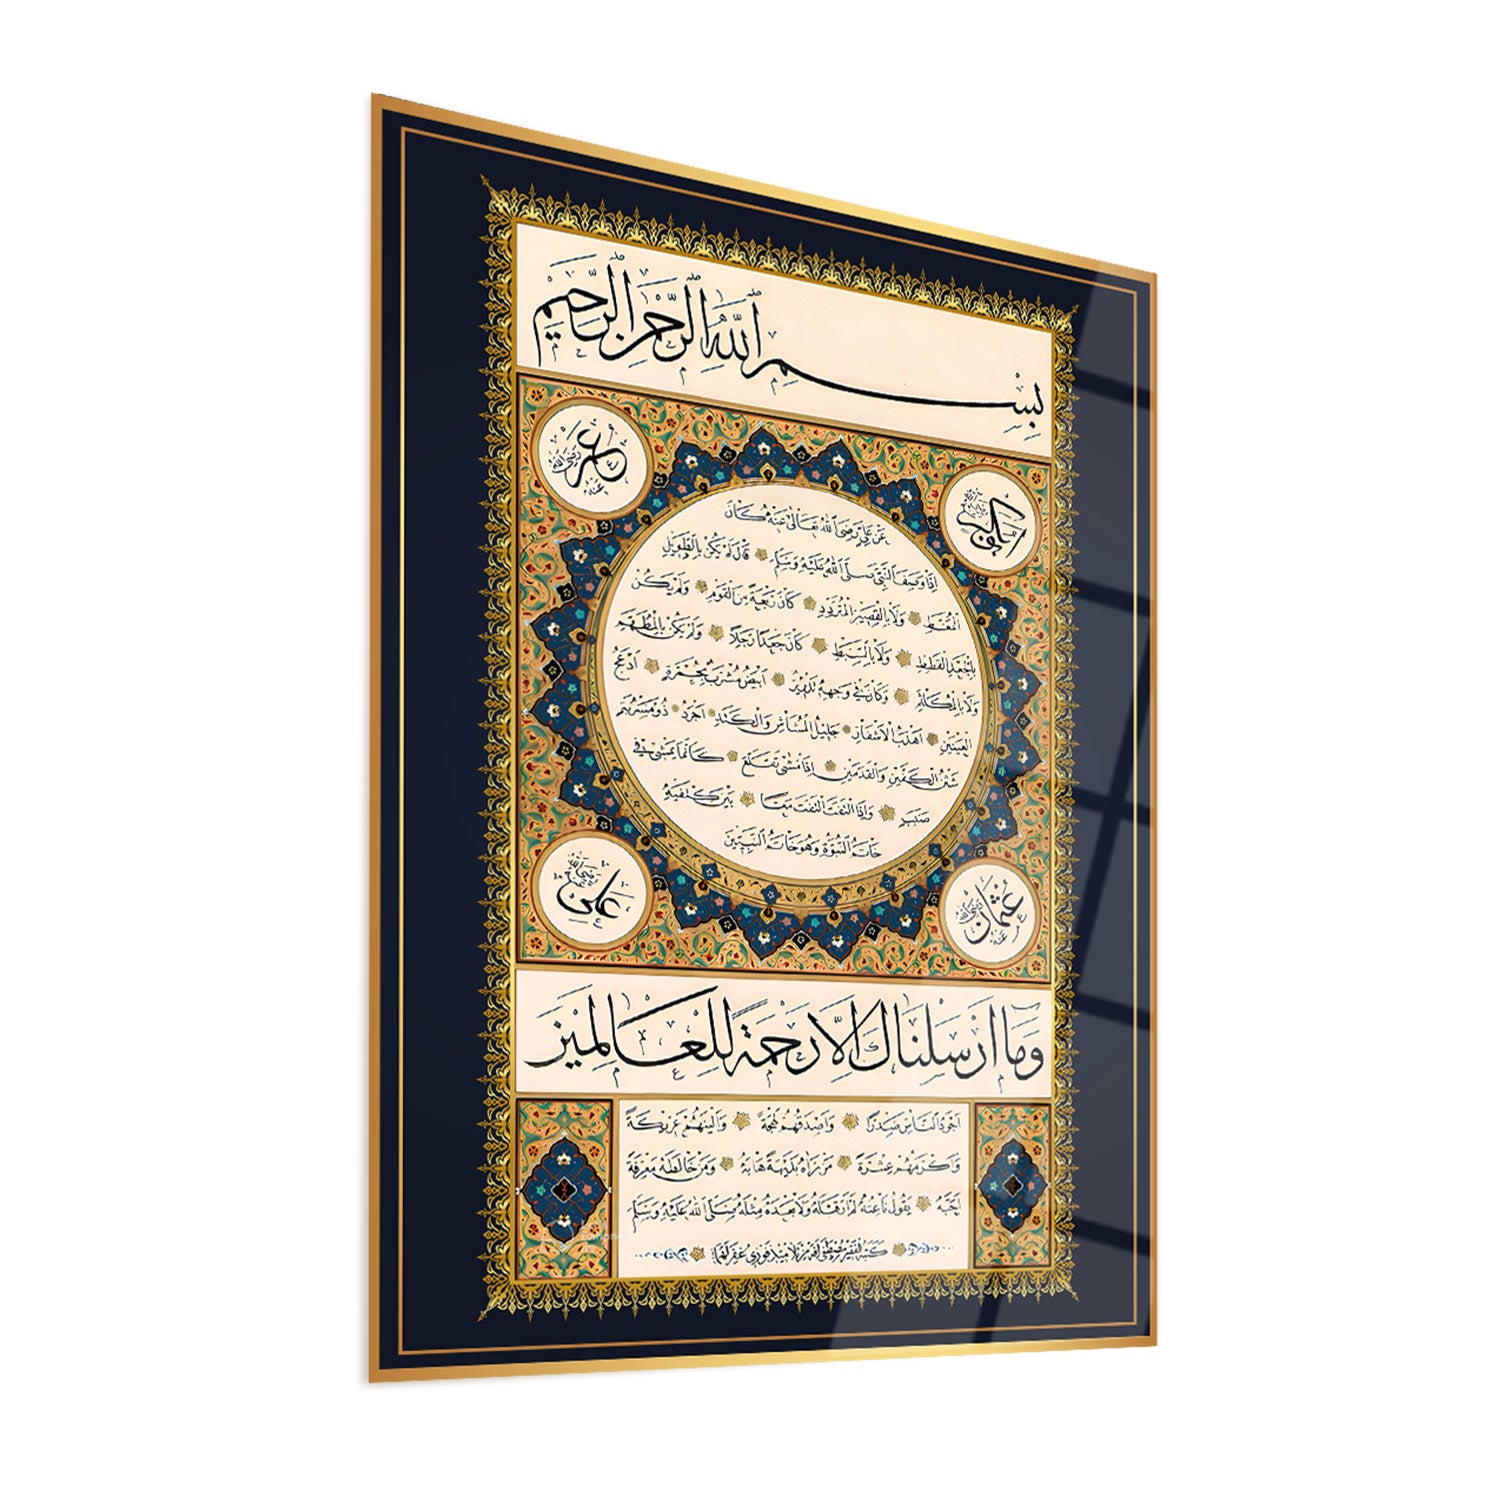 بسم الله الرحمن الرحيم
ابوبكر رضي الله عنه
عمر رضي الله عنه
عن علي رضي الله تعالى عنه كان
اذا وصف النبي صلى الله عليه وسلم قال لم يكن بالطويل
الممغط ولا بالقصير المتردد كان ربعة من القوم ولم يكن
بالجعد القطط ولا بالسبط كان جعدا رجلا ولم يكن بالمطهم
ولا بالمكلثم وكان في وجهه تدوير ابيض مشرب بحمرة ادعج
العينين اهدب الاشفار جليل المشاش والكتد اجرد ذو مسربة
شثن الكفين والقدمين اذا مشى تقلع كانما يمشي في
صبب واذا التفت التفت معا بين كتفيه
خاتم النبوة وهو خاتم النبيين
عثمان رضي الله عنه
علي رضي الله عنه
وما ارسلناك الا رحمة للعالمين
اجود الناس صدرا واصدقهم لهجة والينهم عريكة
واكرمهم عشرة من رآه بديهة هابه ومن خالطه معرفة
احبه يقول ناعته لم ار قبله ولا بعده مثله صلى الله عليه وسلم
كتبه الفقير مصطفى افقر من تلاميذ فوزي غفر لهما